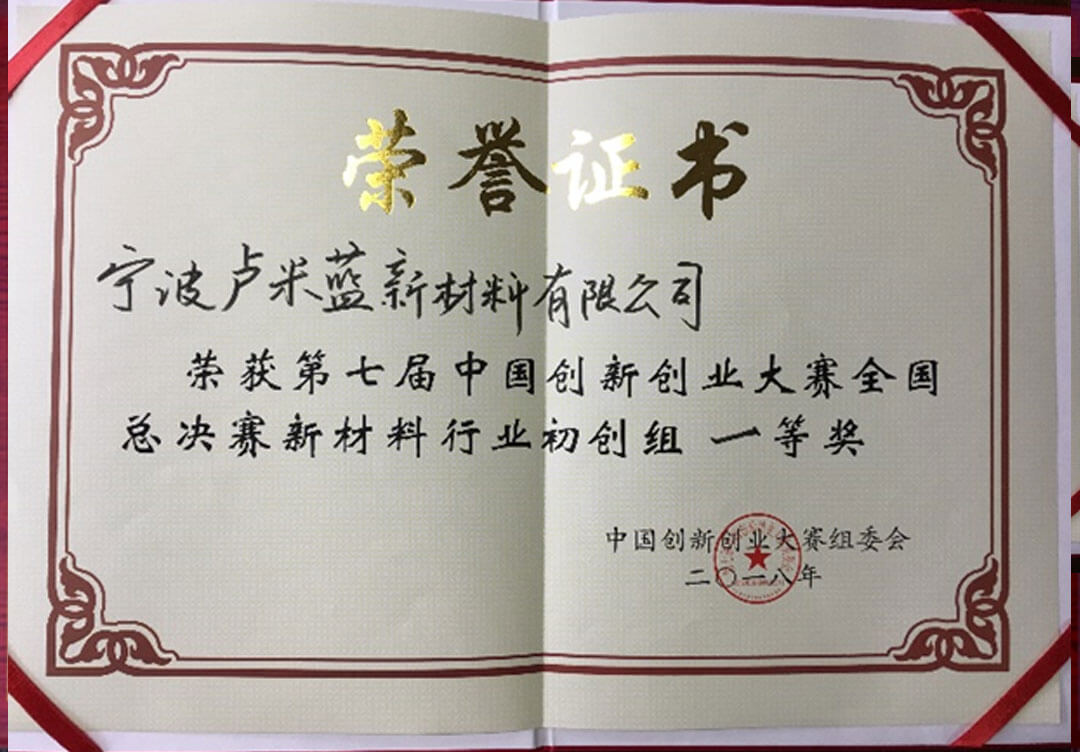 荣誉证书
宁波卢米蓝新材料有限公司
荣获第七届中国创新创业大赛全国
总决赛新材料行业初创组 一等奖
中国创新创业大赛组委会
二〇一八年